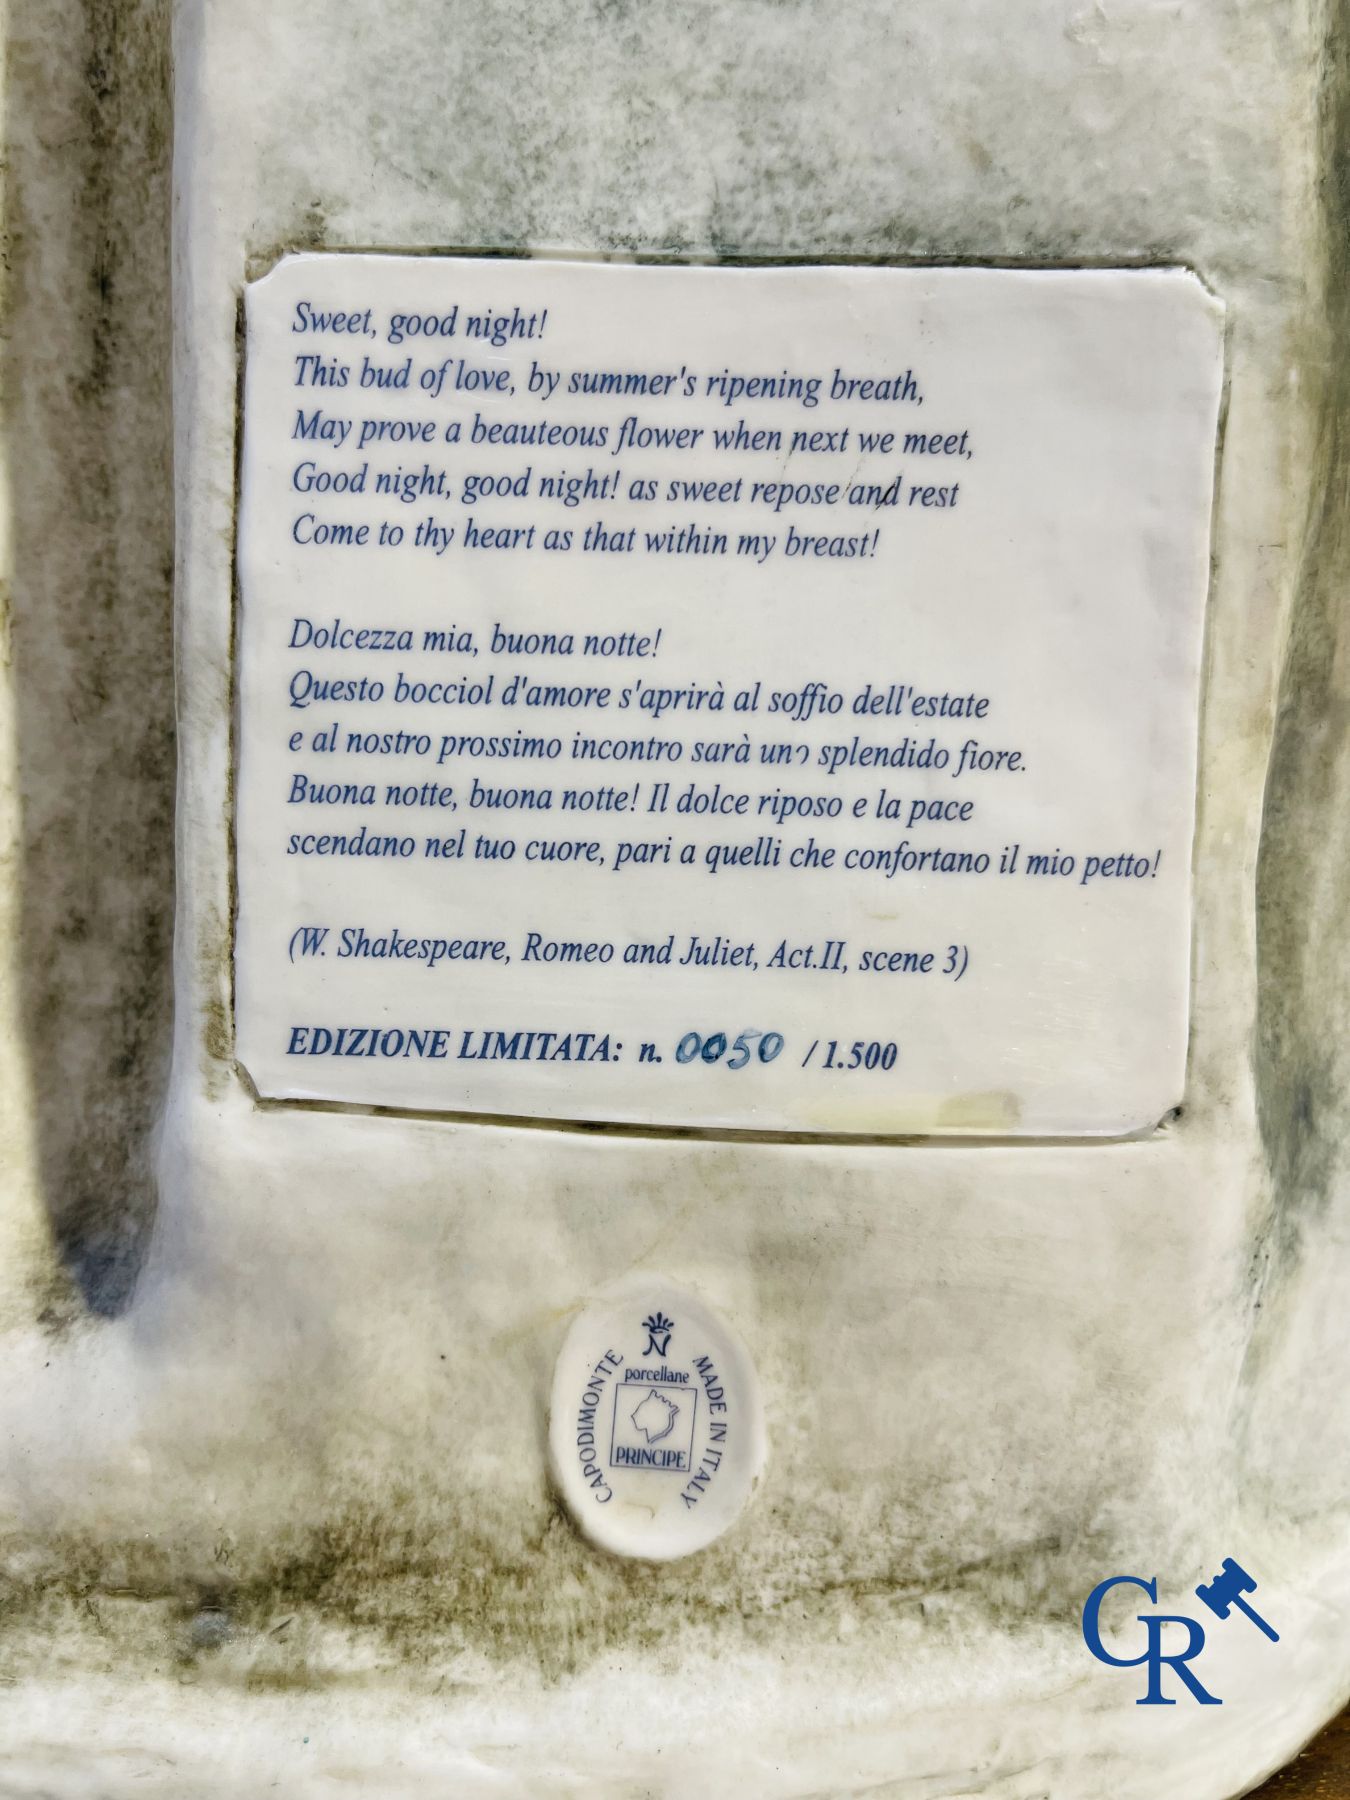 Sweet, good night!
This bud of love, by summer's ripening breath,
May prove a beauteous flower when next we meet,
Good night, good night! as sweet repose and rest
Come to thy heart as that within my breast!
Dolcezza mia, buona notte!
Questo bocciol d'amore s'aprirà al soffio dell'estate
e al nostro prossimo incontro sarà uno splendido fiore.
Buona notte, buona notte! Il dolce riposo e la pace
scendano nel tuo cuore, pari a quelli che confortano il mio petto!
(W. Shakespeare, Romeo and Juliet, Act.II, scene 3)
EDIZIONE LIMITATA: n. 0050 / 1.500
N
CAPODIMONTE
porcellane
PRINCIPE
MADE IN ITALY
CR